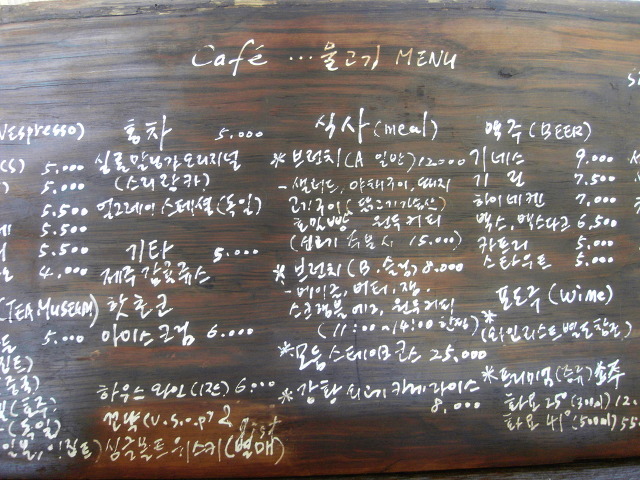 Café ... 물고기 MENU
espresso)
5.000
5.000
5.500
5.500
5.500
4.000
(TEA MUSEUM)
5.000
홍차 5.000
실론 말날가 오리지널
(스리랑카)
얼그레이 스페셜 (독일)
기타 5.000
제주 감귤쥬스
핫초코
아이스크림 6.000
하우스 와인 (1잔) 6.000
꼬냑 (V.S.O.P) &
싱글몰트 위스키 (별매)
식사 (meal)
* 브런치 (A 일반) 12.000
- 샐러드, 야채구이, 돼지
고기구이
호밀빵 원두커피
15.000)
* 브런치 (B. 슬림) 8.000
- 베이글, 버터, 잼,
스크램블 에그, 원두커피
(11:00~14:00 한정)
* 모듬 스테이크 코스 25,000
* 강황 카레라이스
8,000
맥주 (BEER)
기네스 9.000
기린 7.500
하이네켄 7,000
벡스, 벡스다크 6,500
카프리 5.000
스타우트 5.000
포도주 (wine)
* (와인리스트 별도 참조)
* 프리미엄 (증류) 소주
화요 25° (300ml) 12.
화요 41° (500ml) 55